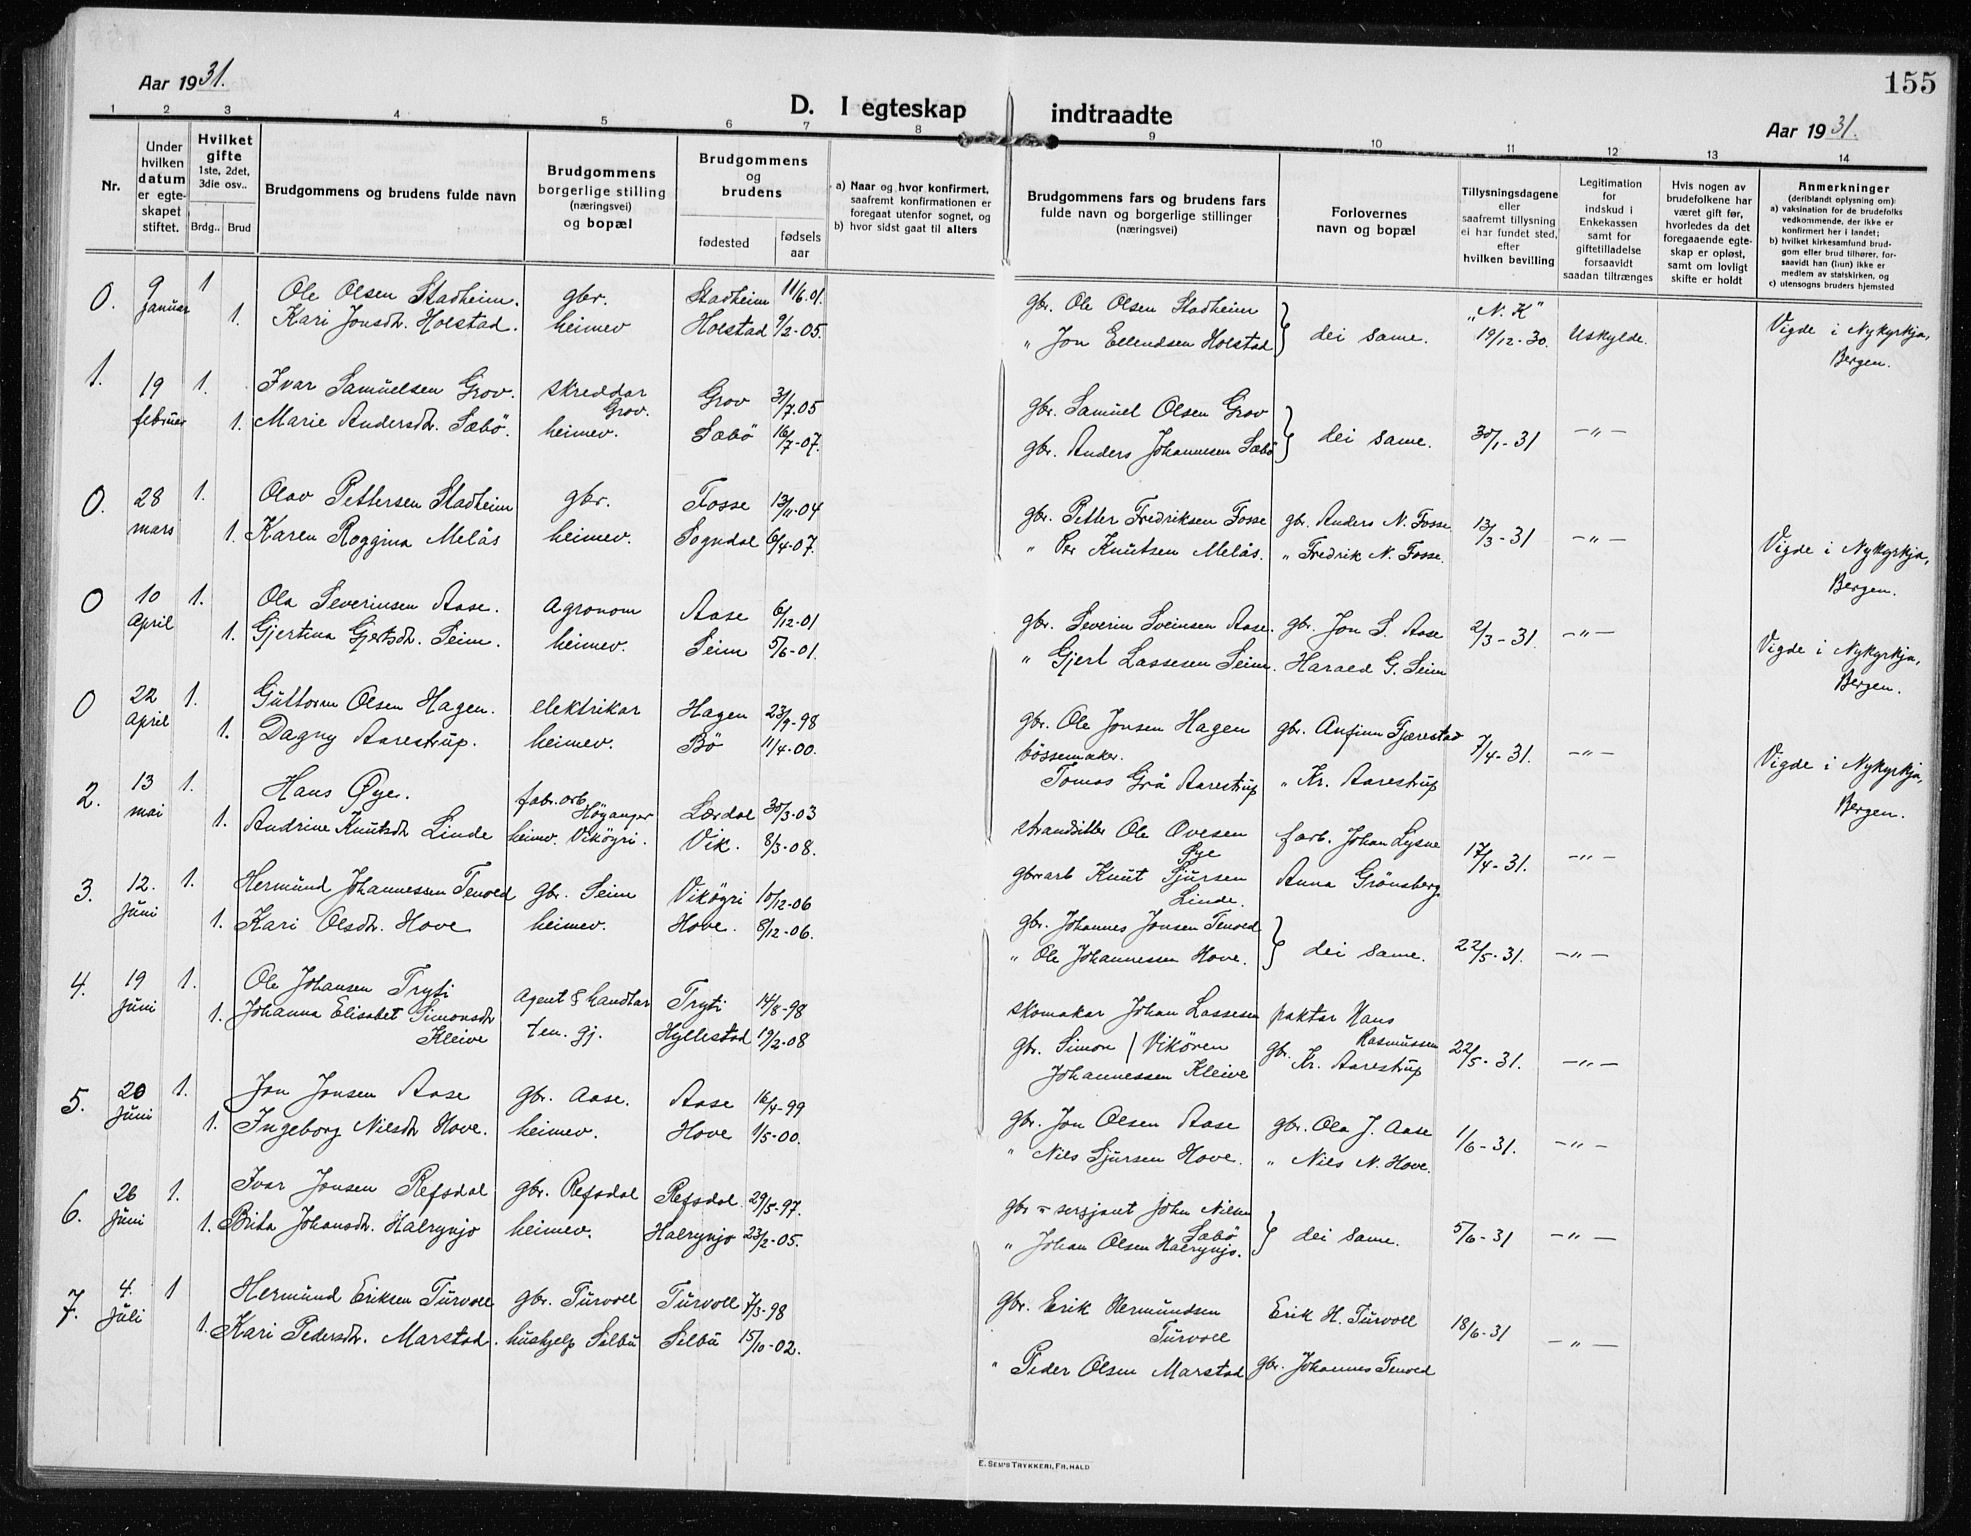 Aar 1931.
D. I egteskap indtraadte
155
Aar 1931.
1 2 3 4 5 6 7 8 9 10 11 12 13 14
Nr.
Under hvilken datum er egteskapet stiftet.
Hvilket gifte 1ste, 2det, 3die osv..
Brdg.. Brud
Brudgommens og brudens fulde navn
Brudgommens borgerlige stilling (næringsvei) og bopæl
Brudgommens og brudens
fødested
fødsels aar
a) Naar og hvor konfirmert, saafremt konfirmationen er foregaat utenfor sognet, og
b) hvor sidst gaat til alters
Brudgommens fars og brudens fars fulde navn og borgerlige stillinger (næringsvei)
Forlovernes navn og bopæl
Tillysningsdagene eller saafremt tillysning ei har fundet sted, efter hvilken bevilling
Legitimation for indskud i Enkekassen samt for giftetilladelse forsaavidt saadan tiltrænges
Hvis nogen av brudefolkene har været gift før, hvorledes da det foregaaende egteskap er opløst, samt om lovligt skifte er holdt
Anmerkninger (deriblandt oplysning om)
a) vaksination for de brudefolks vedkommende, der ikke er konfirmert her i landet;
b) hvilket kirkesamfund brudgom eller brud tilhører, forsaavidt han (hun) ikke er medlem av statskirken, og
c) utensogns bruders hjemsted
0. 9 januar 1 Ole Olsen Stadheim. gbr. Stadheim 11/6.01. gbr. Ole Olsen Stadheim } dei same. "N. K" 19/12-30. Uskylde. Vigde i Nykyrkja, Bergen.
1. Kari Jonsdtr. Holstad. heimev Holstad 9/2-05. " Jon Ellendsen Holstad
1. 19 februar 1. Ivar Samuelsen Grov. skreddar Grov. Grov 31/7.05 gbr. Samuel Olsen Grov } dei same. 30/1-31 -"-
1. Marie Andersdtr. Sæbö. heimev. Sæbö 16/7-07. gbr. Anders Johannesen Sæbö
0. 28 mars 1. Olav Pettersen Stadheim gbr. Fosse 13/11-04 gbr. Petter Fredriksen Fosse gbr. Anders N. Fosse 13/3-31 -"- Vigde i Nykyrkja, Bergen.
1. Karen Roggina Melås heimev. Sogndal 6/4-07. " Per Knutsen Melås. " Fredrik N. Fosse.
0 10 april 1. Ola Severinsen Aase. agronom Aase 6/12-01 gbr. Severin Sveinsen Aase. gbr. Jon S. Aase 2/3-31 -"- Vigde i Nykyrkja, Bergen.
1. Gjertina Gjertsdtr. Seim. heimev. Seim 5/6-01. " Gjert Lassesen Seim. Harald G. Seim
0 22 april 1. Guttorm Olsen Hagen. elektrikar Hagen 23/9-98 gbr. Ole Jonsen Hagen gbr. Anfinn Fjærestad 7/4-31. -"- Vigde i Nykyrkja, Bergen.
1. Dagny Aarestrup. heimev. Bö 11/4-00. bössemaker. Tomas Grå Aarestrup " Kr. Aarestrup
2. 13 mai 1. Hans Øye. fabr.arb. Höyanger Lærdal 30/3-03 strandsitter Ole Ovesen Øye farb. Johan Lysne 17/4-31. -"-
1. Andrine Knutsdtr Linde heimev. Vikögri. Vik. 8/3-08. gbrarb Knut Sjursen Linde. Anna Grönsberg
3. 12. juni 1. Hermund Johannessen Tenold gbr. Seim Vikögri 10/12-06 gbr. Johannes Jonsen Tenold } dei same. 22/5-31. -"-
1. Kari Olsdtr. Hove heimev. Hove. 8/12-06. " Ole Johannessen Hove.
4. 19 juni 1. Ole Johansen Tryti agent & handlar Tryti 14/8-98 skomakar Johan Lassesen Vikören paktar Hans Rasmussen 22/5-31. -"-
1. Johanna Elisabet Simonsdtr Kleive ten. gj. Hyllestad 19/2-08 gbr. Simon Johannessen Kleive gbr. Kr. Aarestrup
5. 20 juni 1. Jon Jonsen Aase gbr. Aase. Aase 16/4-99 gbr. Jon Olsen Aase gbr. Ola J. Aase 1/6-31. -"-
1. Ingeborg Nilsdtr Hove. heimev. Hove 1/5-00. " Nils Sjursen Hove. " Nils N. Hove.
6. 26 juni 1. Ivar Jonsen Refsdal gbr. Refsdal Refsdal 29/5-97. gbr - sersjant John Nilsen Sæbö } dei same. 5/6-31 -"-
1. Brita Johansdtr. Halrynjo heimev. Halrynjo 23/2-05. " Johan Olsen Halrynjo.
7. 4. juli 1 Hermund Eriksen Turvoll gbr. Turvoll Turvoll 7/3-98 gbr. Erik Hermundsen Turvoll Erik H. Turvoll 18/6-31 -"-
1. Kari Pedersdtr. Marstad. hushjelp Selbu Selbu 15/10-02. " Peder Olsen Marstad gbr. Johannes Tenold
E. SEM'S TRYKKERI, FR.HALD